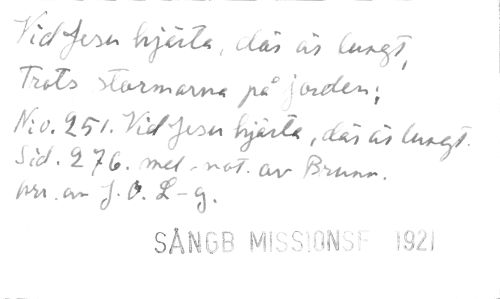 Vid Jesu hjärta, där är lungt,
Trots stormarna på jorden;
N:o. 251. Vid Jesu hjärta, där är lungt.
Sid. 276. mel. not. av Brunn.
arr. av J. O. L-g.
SÅNGB MISSIONSF 1921